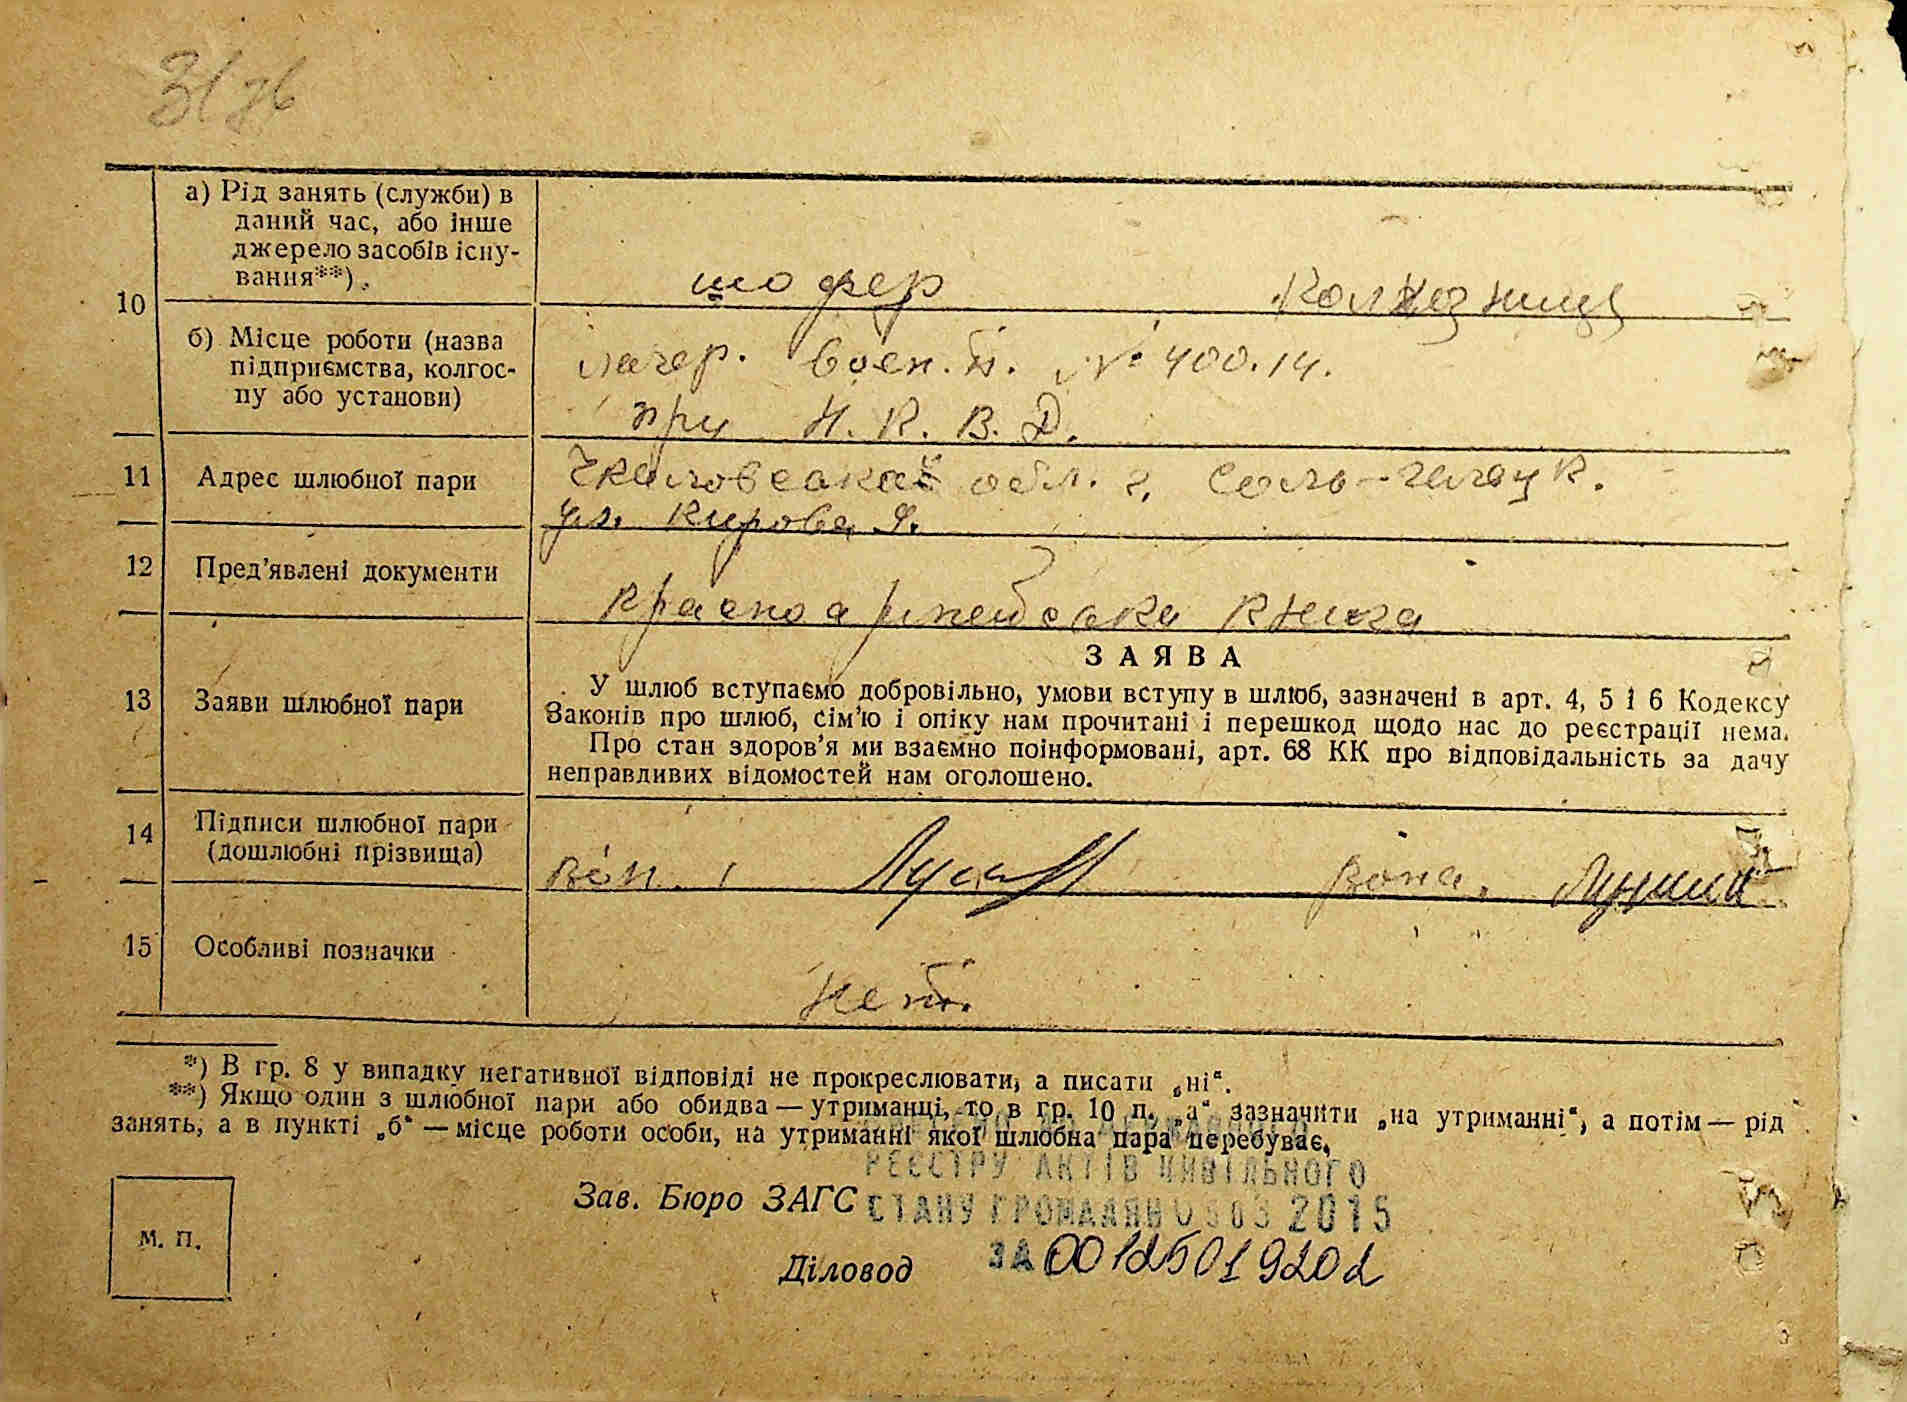 а) Рід занять (служби) в
даний час, або інше
джерело засобів існу-
вання**).
шофер колхозница
10
б) Місце роботи (назва
підприємства, колгос-
пу або установи)
лагер. воен.п. № 400.14.
при Н.К.В.Д.
11 Адрес шлюбної пари
Чкаловская обл. г. Соль-Илецк.
ул. Кирова
12 Пред'явлені документи
красноармейська книга
ЗАЯВА
13 Заяви шлюбної пари
У шлюб вступаємо добровільно, умови вступу в шлюб, зазначені в арт. 4, 5 і 6 Кодексу
Законів про шлюб, сім'ю і опіку нам прочитані і перешкод щодо нас до реєстрації нема.
Про стан здоров'я ми взаємно поінформовані, арт. 68 КК про відповідальність за дачу
неправдивих відомостей нам оголошено.
14 Підписи шлюбної пари
(дошлюбні прізвища)
він. вона.
15 Особливі позначки
Нет.
*) В гр. 8 у випадку негативної відповіді не прокреслювати, а писати „ні“.
**) Якщо один з шлюбної пари або обидва — утриманці, то в гр. 10 п. „а“ зазначити „на утриманні“, а потім — рід
занять, а в пункті „б“ — місце роботи особи, на утриманні якої шлюбна пара перебуває.
РЕЄСТРУ АКТІВ ЦИВІЛЬНОГО
Зав. Бюро ЗАГС
СТАНУ ГРОМАДЯН 0503 2015
М. П.
Діловод
ЗА 00125019202